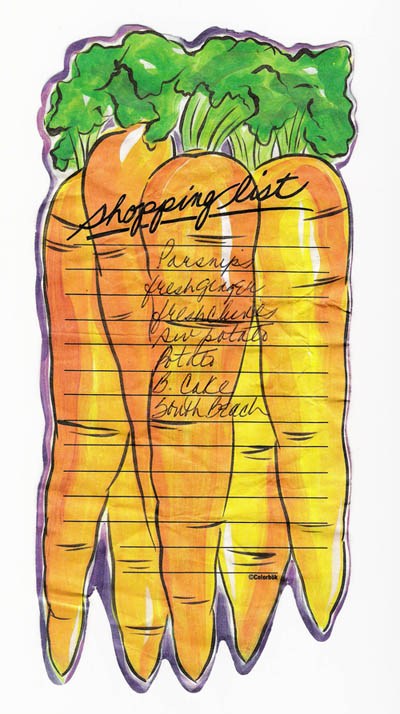 shopping list
Parsnips
fresh ginger
fresh chives
sw potato
Potato
B. Cake
South Beach
©Colorbök